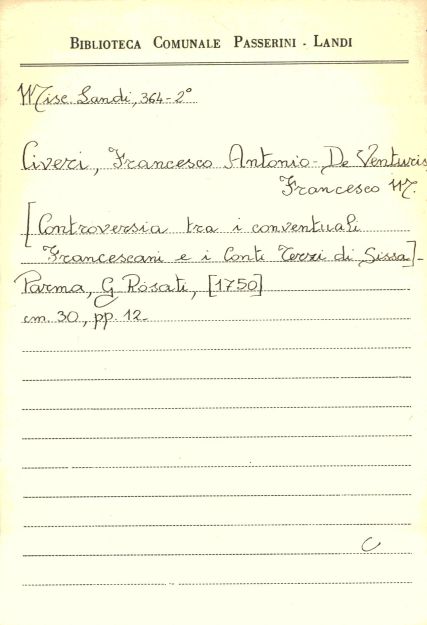 BIBLIOTECA COMUNALE PASSERINI - LANDI
Misc. Landi, 364-2°
Civeri, Francesco Antonio - De Venturis
Francesco M.
[Controversia tra i conventuali
Francescani e i Conti Terzi di Sissa] -
Parma, G Rosati, [1750]
cm. 30, pp. 12-
C